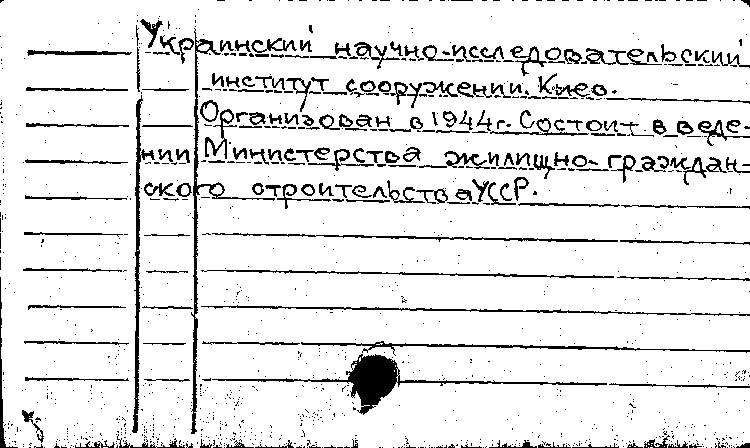 Украинский научно-исследовательский
институт сооружений. Киев.
Организован в 1944г. Состоит в веде-
нии Министерства жилищно-граждан-
ского строительства УССР.